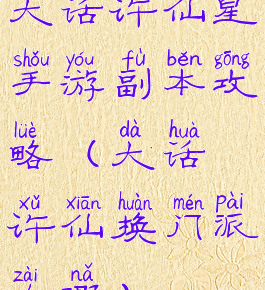 大话许仙星
shǒu yóu fù běn gōng
手游副本攻
lüè dà huà
略（大话
xǔ xiān huàn mén pài
许仙换门派
zài nǎ